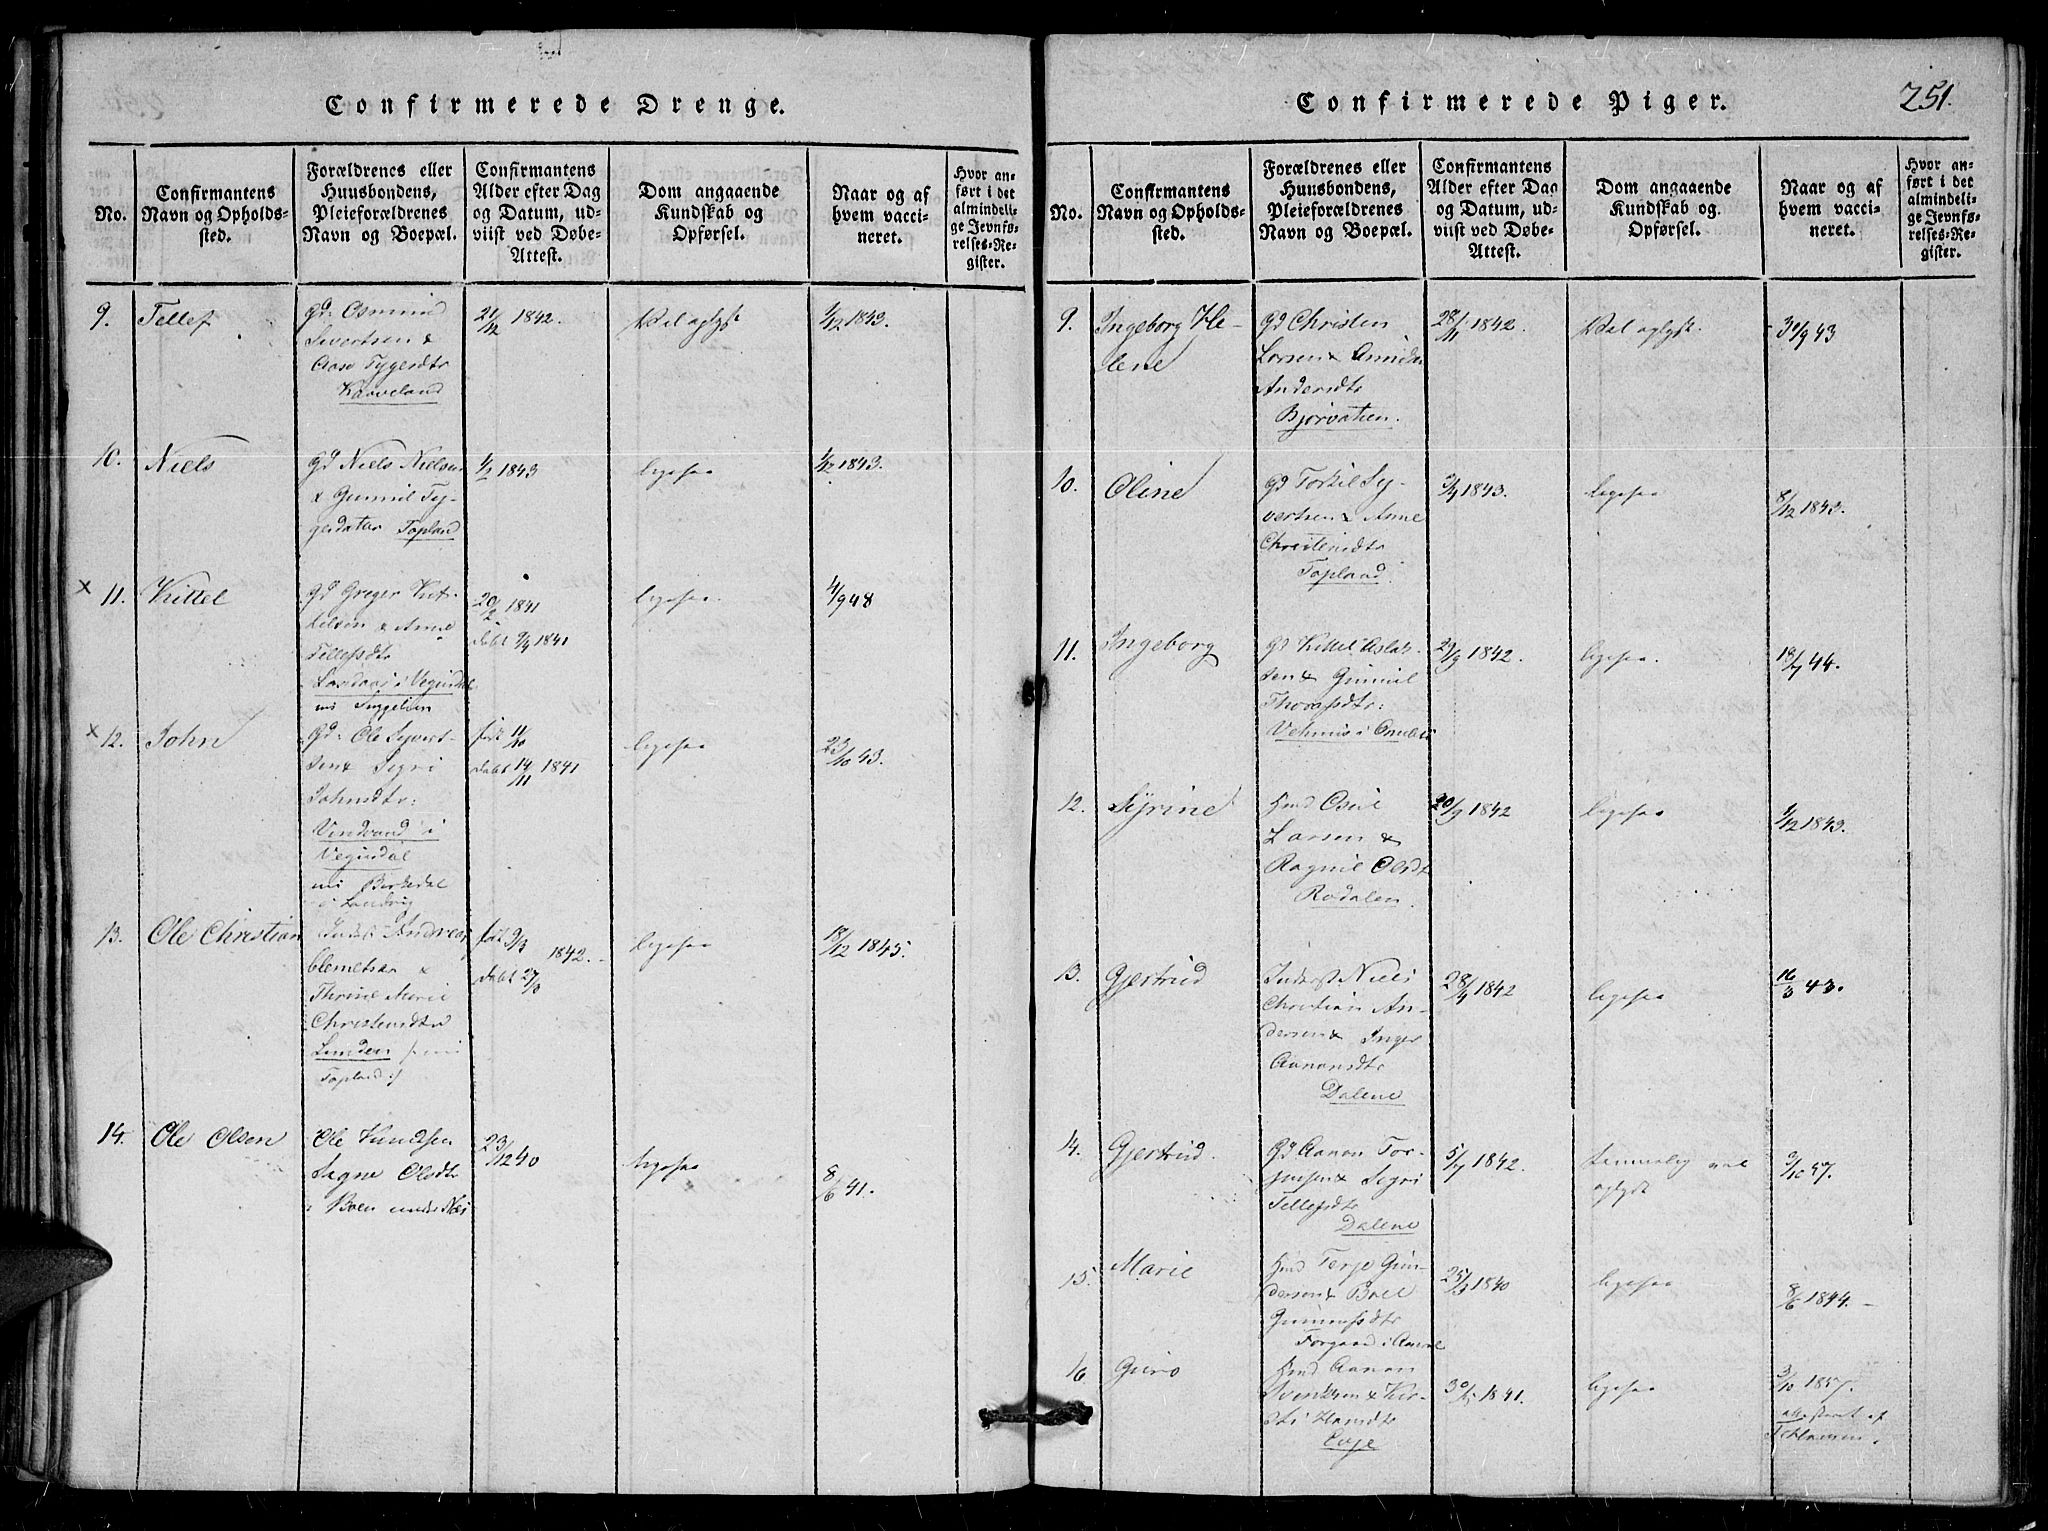 Confirmerede Drenge.
No.
Confirmantens
Navn og Opholds-
sted.
Forældrenes eller
Huusbondens,
Pleieforældrenes
Navn og Boepæl.
Confirmantens
Alder efter Dag
og Datum, ud-
viist ved Døbe-
Attest.
Dom angaaende
Kundskab og
Opførsel.
Naar og af
hvem vacci-
neret.
Hvor an-
ført i det
almindeli-
ge Jevnfø-
relses-Re-
gister.
9.
Tellef
Gd. Osmund
Sivertsen &
Aase Tygesdtr
Kaaveland
21/12 1842.
Vel oplyst
1/12 1843.
10.
Niels
Gd Niels Nielsen
& Gunnil Ty-
gesdatter Topland
1/2 1843
ligesaa
1/12 1843.
x 11.
Kittel
Gd Greger Kit-
tilsen & Anne
Tellefsdtr
i Vegusdal
20/2 1841
døbt 9/4 1841
ligesaa
4/9 48
x 12.
John
Gd. Ole Syvert-
sen & Segri
Johnsdtr:
Vindvand i
Vegusdal
nu Birkedal
i Landvig
født 11/10
døbt 14/11 1841
ligesaa
23/10 43.
13.
Ole Christian
Inderst Andreas
Clemetsen &
Thrine Marie
Christensdtr
Lunden /: nu
Topland :/
født 9/3 1842.
døbt 27/3
ligesaa
18/12 1845.
14.
Ole Olsen
Ole Knudsen
Signe Olsdtr
i Boen under Næs
23/12 40
ligesaa
8/6 41.
Confirmerede Piger.
251.
No.
Confirmantens
Navn og Opholds-
sted.
Forældrenes eller
Huusbondens,
Pleieforældrenes
Navn og Boepæl.
Confirmantens
Alder efter Dag
og Datum, ud-
viist ved Døbe-
Attest.
Dom angaaende
Kundskab og
Opførsel.
Naar og af
hvem vacci-
neret.
Hvor an-
ført i det
almindeli-
ge Jevnfø-
relses-Re-
gister.
9.
Ingeborg He-
lene
Gd Christen
Larsen &
Andersdtr
Bjorvatten.
28/11 1842.
Vel oplyst.
30/9 43
10.
Oline
Gd Torkil Sy-
vertsen & Anne
Christensdtr
Topland.
3/4 1843.
ligesaa
8/12 1843.
11.
Ingeborg
Gd Kittel Aslak-
sen & Gunnil
Thorasdtr:
i
29/9 1842.
ligesaa.
18/7 44.
12.
Syrine
Hmd Osul
Larsen &
Ragnil Olsdt
Rodalen.
20/9 1842
ligesaa
1/12 1843.
13.
Gjertrud
Inderst Niels
Christian An-
dersen & Inger
Aanonsdtr
Dalene
28/4 1842
ligesaa
16/3 43.
14.
Gjertrud.
Gd Aanon Tor-
jusen & Segri
Tellefsdtr
Dalene
5/7 1842.
temmelig vel
oplyst
3/10 57.
15.
Marie
Hmd Terje Gun-
dersen & Boel
Gunnufsdtr
i
25/3 1840
ligesaa
8/6 1844.
16
Guro
Hmd Aanon
Svenksen & Kir-
sti Hansdtr
Evje
30/5 1841.
ligesaa
3/10 1857.
attesteret af